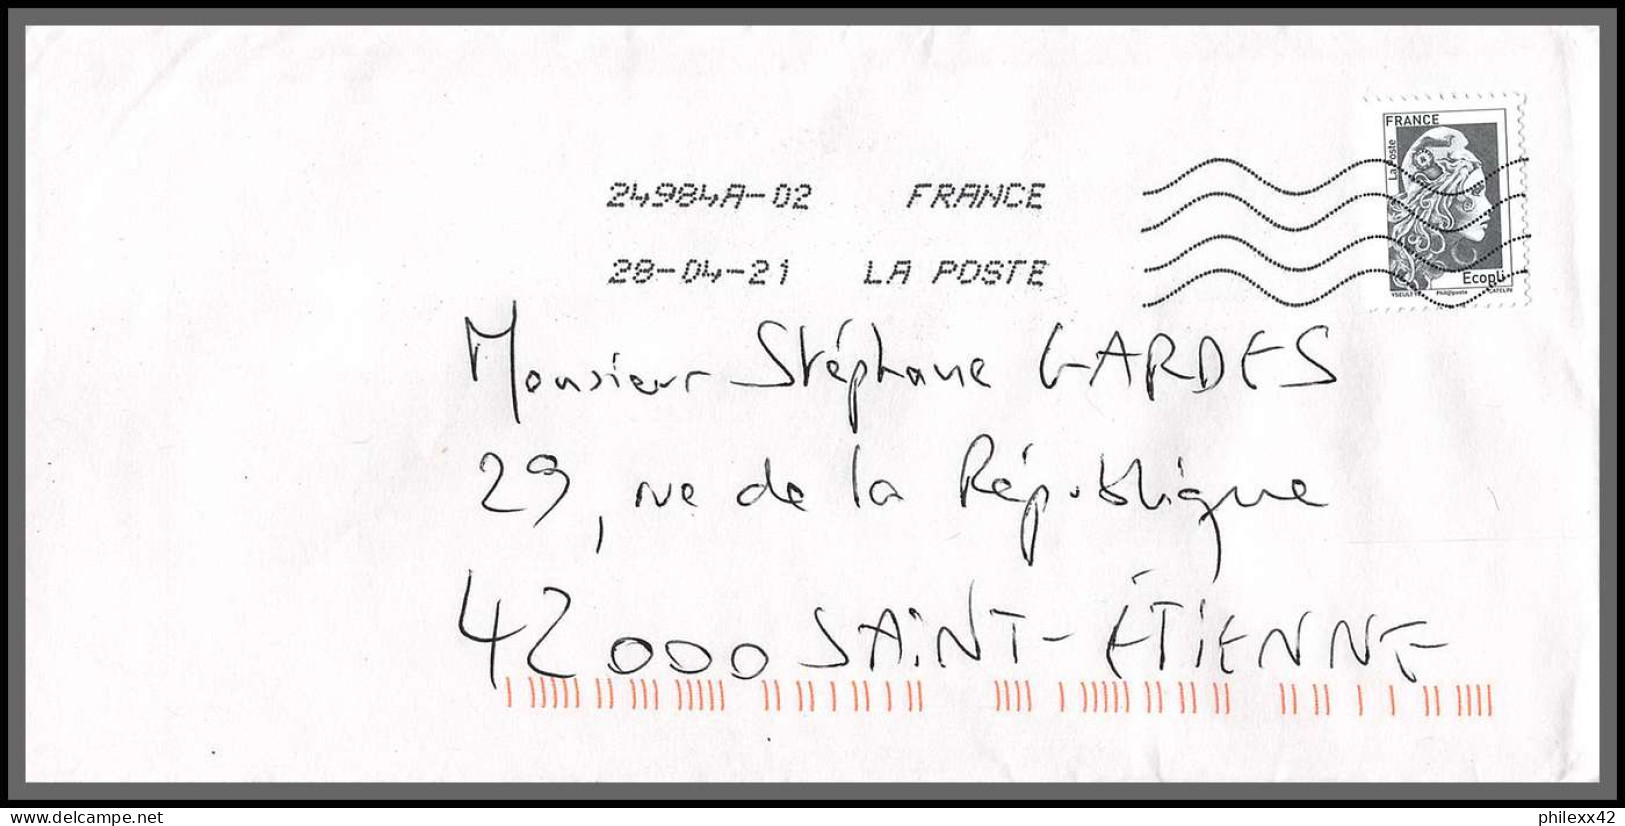 FRANCE
La Poste
24984A-02 FRANCE
28-04-21 LA POSTE
Ecopli
Phil@poste
Monsieur Stéphane GARDES
29, rue de la République
42000 SAINT-ÉTIENNE
www.delcampe.net
philexx42